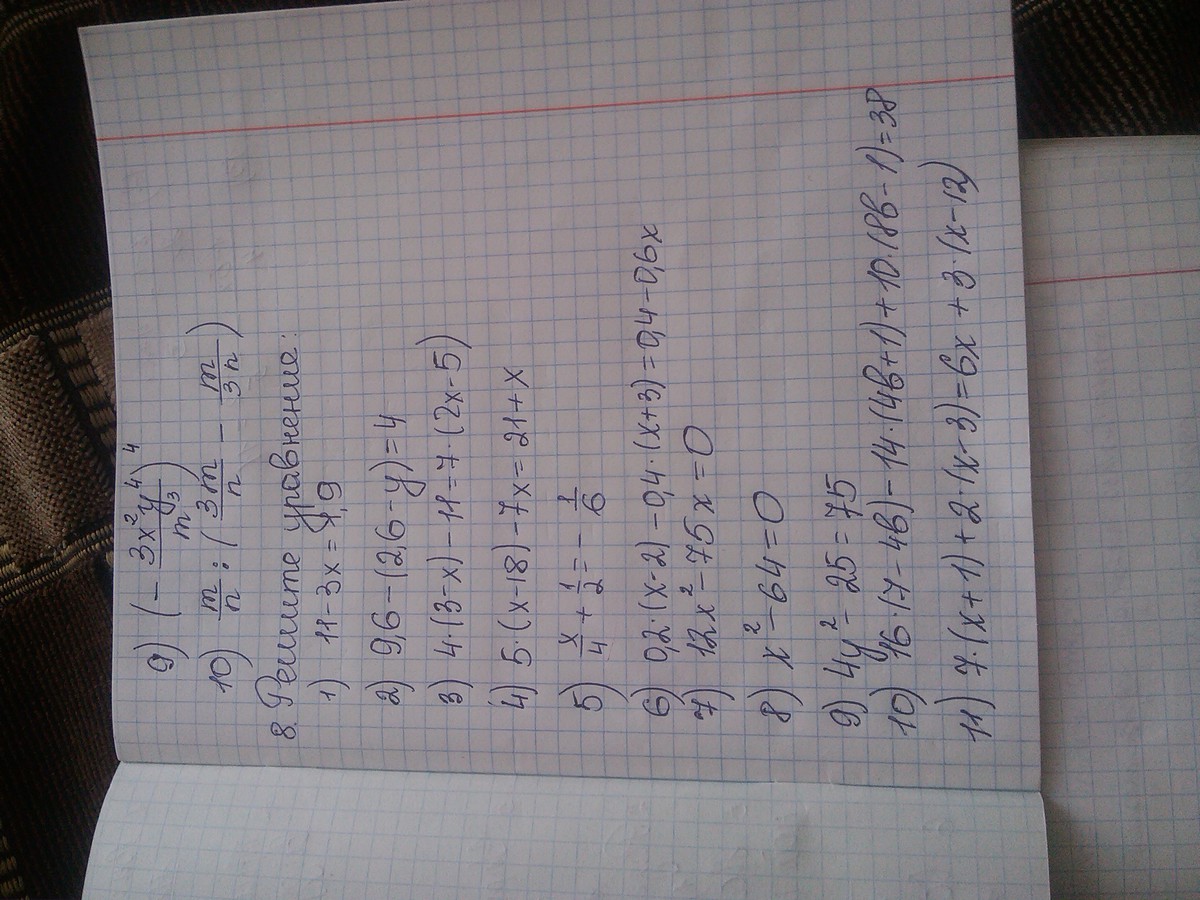 9) (- 3x²y⁴/m³)⁴
10) m/n : (3m/n - m/3n)
8. Решите уравнение:
1) 11-3x=1,9
2) 9,6-(2,6-y)=4
3) 4·(3-x)-11=7·(2x-5)
4) 5·(x-18)-7x=21+x
5) x/4 + 1/2 = - 1/6
6) 0,2·(x-2)-0,4·(x+3)=0,4-0,6x
7) 12x²-75x=0
8) x²-64=0
9) 4y²-25=75
10) 16·(7-4в)-14·(4в+1)+10·(8в-1)=38
11) 7·(x+1)+2·(x-3)=6x+3·(x-12)